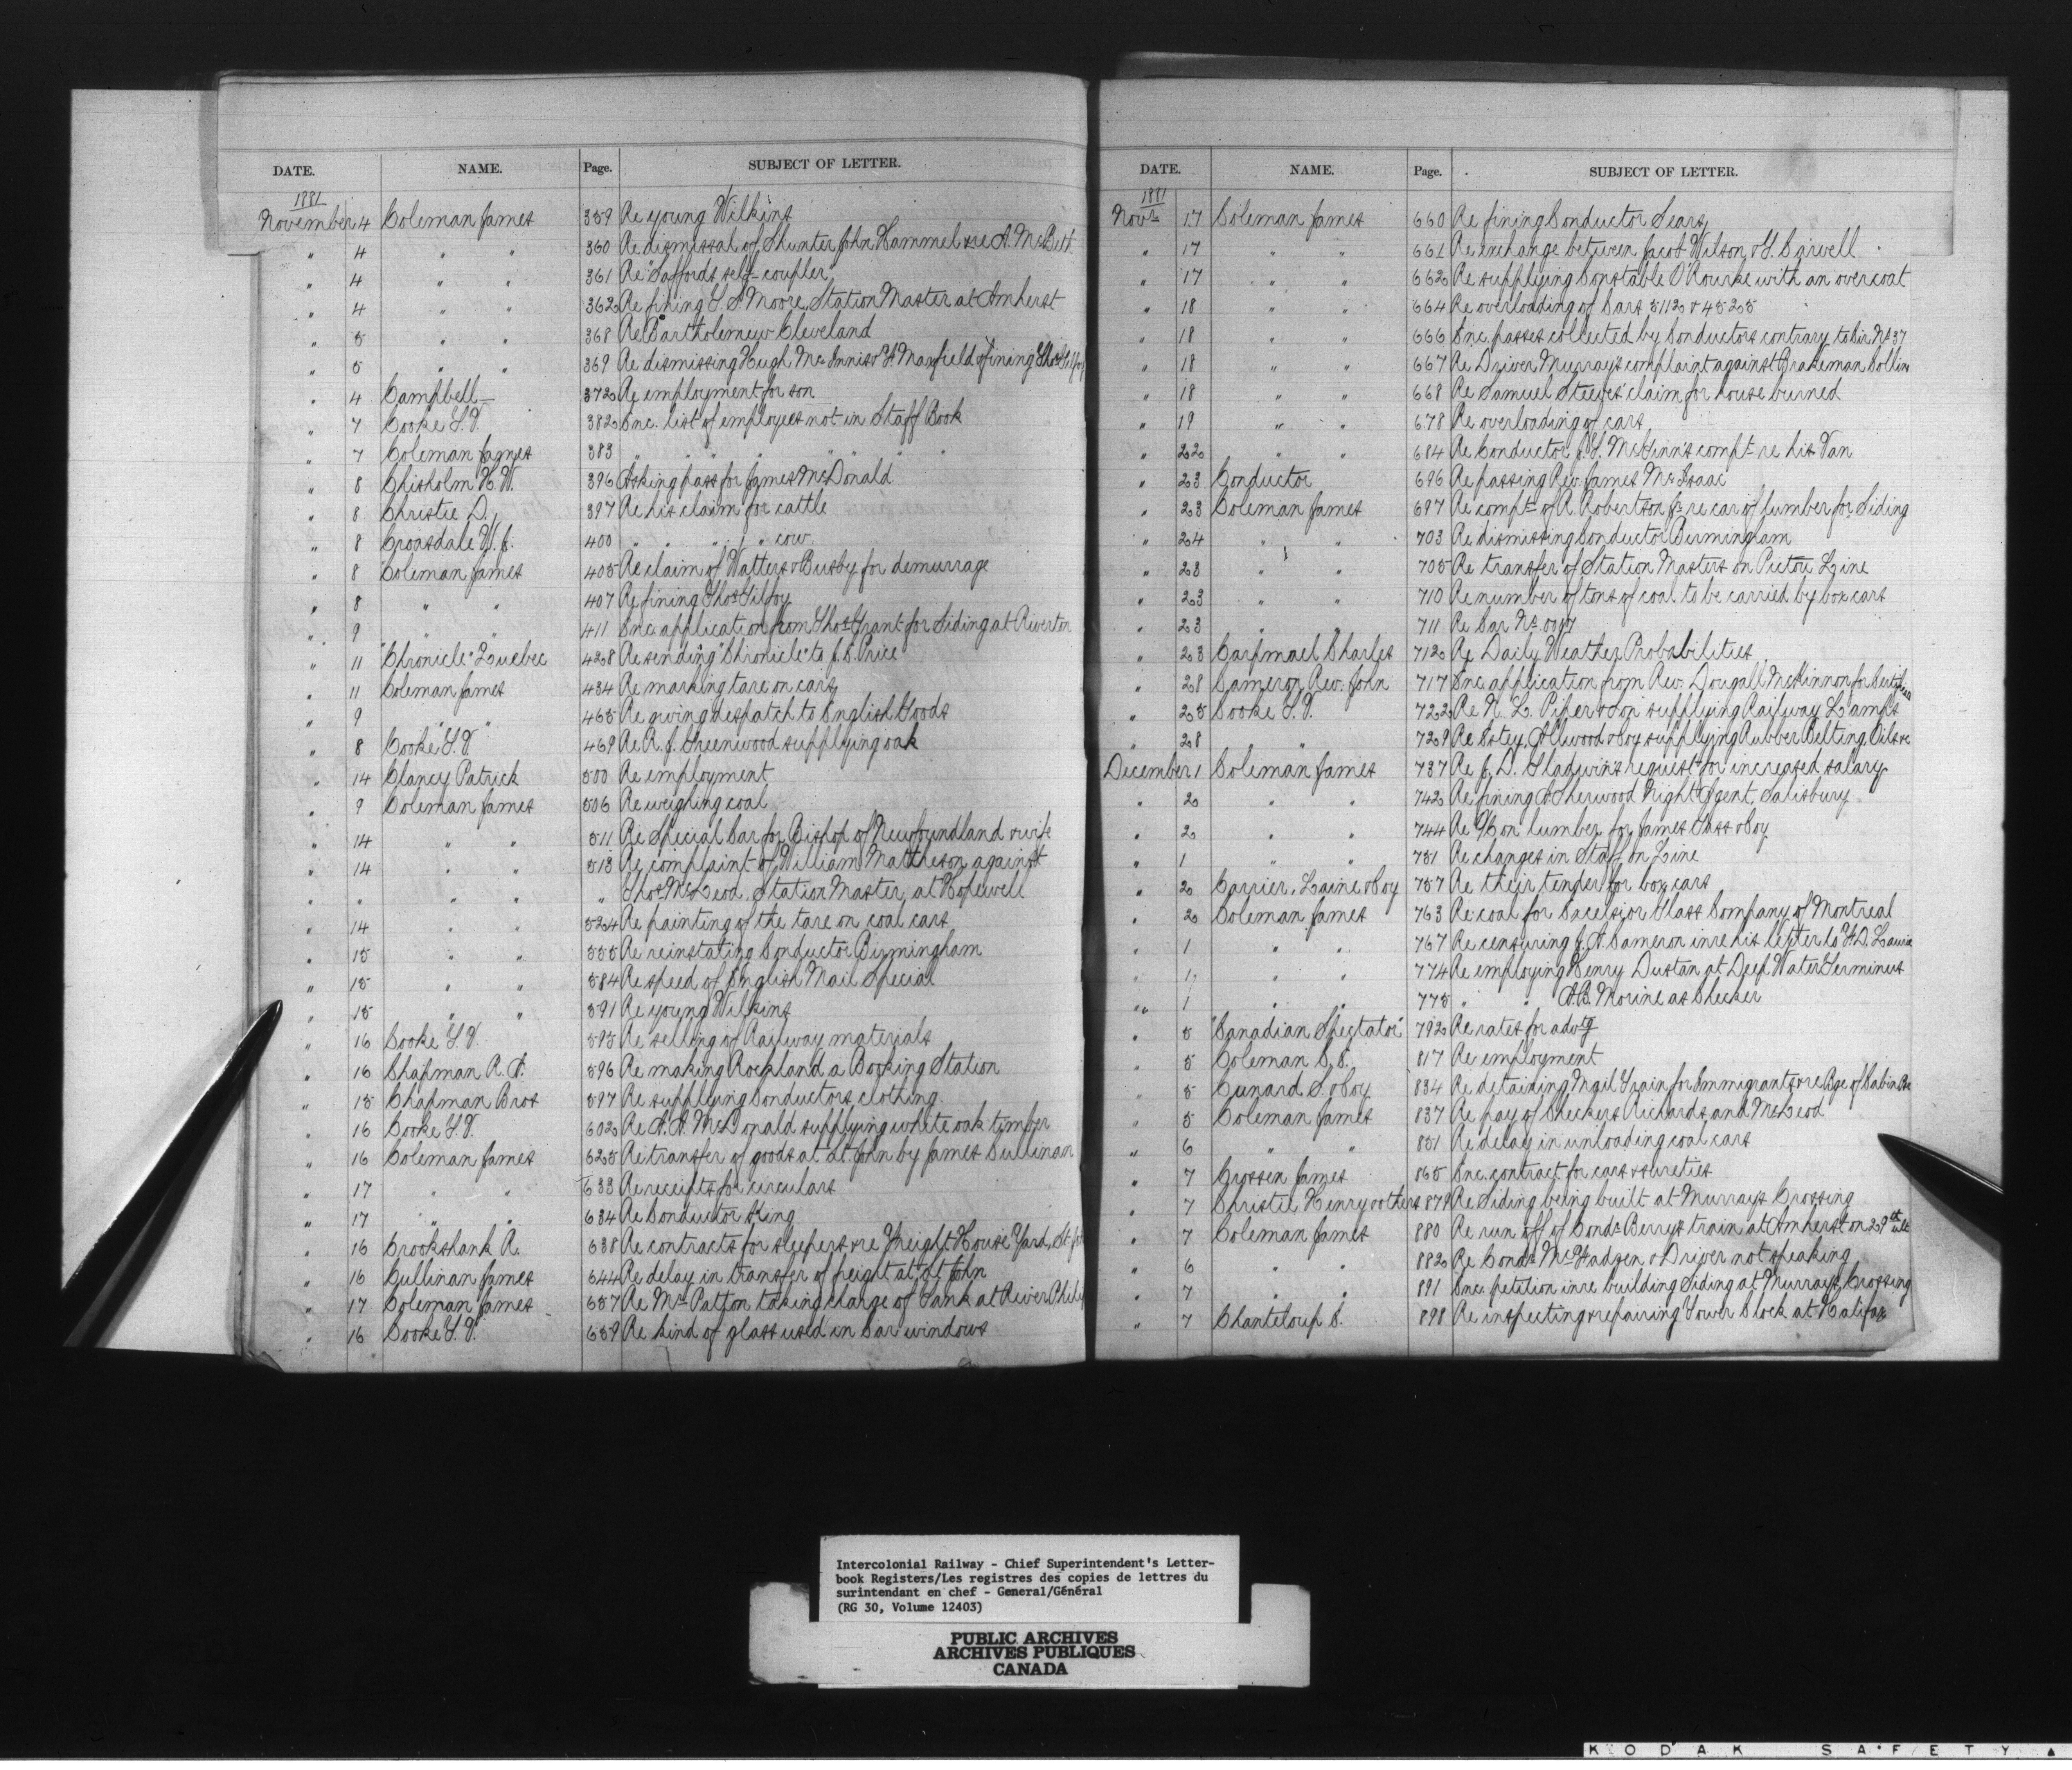 DATE. NAME. Page. SUBJECT OF LETTER.
1881
November 4 Coleman James 359 Re young Wilkins
" 4 " " 360 Re dismissal of Shunter John Hammel & re A. McBeth
" 4 " " 361 Re "Saffords self-coupler
" 4 " " 362 Re fining Moore, Station Master at Amherst
" 5 " " 368 Re Bartholemew Cleveland
" 5 " " 369 Re dismissing Hugh McInnis & Manfield & fining Thos Gilfoy
" 4 Campbell 372 Re employment for son
" 7 Cooke T.V. 382 Enc. list of employees not in Staff Book
" 7 Coleman James 383 " " " " " " "
" 8 Chisholm H.W. 396 Asking pass for James McDonald
" 8 Christie D. 397 Re his claim for cattle
" 8 Croasdale W.J. 400 " " " " cow
" 8 Coleman James 405 Re claim of Watters & Busby for demurrage
" 8 " " 407 Re fining Thos Gilfoy
" 9 " " 411 Enc. application from Thos Grant for Siding at Riverton
" 11 "Chronicle" Quebec 428 Re sending "Chronicle" to Price
" 11 Coleman James 434 Re marking tare on cars
" 9 " " 465 Re giving despatch to English Goods
" 8 Cooke T.V. 469 Re R. J. Greenwood supplying oak
" 14 Clancy Patrick 500 Re employment
" 9 Coleman James 506 Re weighing coal
" 14 " " 511 Re Special Car for Bishop of Newfoundland & wife
" 14 " " 513 Re complaint of William Matheson against
" " " " " Thos McLeod, Station Master at Hopewell
" 14 " " 524 Re painting of the tare on coal cars
" 15 " " 555 Re reinstating Conductor Birmingham
" 15 " " 584 Re speed of English Mail Special
" 15 " " 591 Re young Wilkins
" 16 Cooke T.V. 595 Re selling of Railway materials
" 16 Chapman R. A. 596 Re making Rockland a Booking Station
" 15 Chapman Bros 597 Re supplying Conductors clothing
" 16 Cooke T.V. 602 Re A. A. McDonald supplying white oak timber
" 16 Coleman James 625 Re transfer of goods at St. John by James Cullinan
" 17 " " 633 Re receipts for circulars
" 17 " " 634 Re Conductor King
" 16 Crookshank R. 638 Re contracts for sleepers & re Freight House Yard, St. Jo
" 16 Cullinan James 644 Re delay in transfer of freight at St John
" 17 Coleman James 657 Re Mrs Patton taking charge of Tank at River Philip
" 16 Cooke T.V. 659 Re kind of glass used in Car windows
DATE. NAME. Page. SUBJECT OF LETTER.
1881
Novr 17 Coleman James 660 Re fining Conductor Sears
" 17 " " 661 Re exchange between Jacob Wilson &
" 17 " " 662 Re supplying Constable O'Rourke with an overcoat
" 18 " " 664 Re overloading of Cars 5112 & 4525
" 18 " " 666 Enc. passes collected by Conductors contrary to Cir No 37
" 18 " " 667 Re Driver Murray's complaint against Brakeman Collins
" 18 " " 668 Re Samuel Steeves' claim for house burned
" 19 " " 678 Re overloading of cars
" 22 " " 684 Re Conductor McKinn's compt re his Van
" 23 Conductor 696 Re passing Rev. James McIsaac
" 23 Coleman James 697 Re compt of A. Robertson Jr re car of lumber for Siding
" 24 " " 703 Re dismissing Conductor Birmingham
" 23 " " 705 Re transfer of Station Masters on Pictou Line
" 23 " " 710 Re number of tons of coal to be carried by box cars
" 23 " " 711 Re Car No.
" 23 Carpmael Charles 712 Re Daily Weather Probabilities
" 28 Cameron Rev. John 717 Enc. application from Rev. Dougall McKinnon for Certificate
" 25 Cooke T.V. 722 Re N. L. Piper & Son supplying Railway Lamps
" 28 " 729 Re Estey, Allwood & Coy supplying Rubber Belting, Oils &c
December 1 Coleman James 737 Re J. D. Gladwin's request for increased salary
" 2 " " 742 Re fining Sherwood Night Agent, Salisbury
" 2 " " 744 Re on lumber for James & Coy
" 1 " " 751 Re changes in Staff on Line
" 2 Carrier, Laine & Coy 757 Re their tender for box cars
" 2 Coleman James 763 Re coal for Excelsior Glass Company of Montreal
" 1 " " 767 Re censuring J. A. Cameron in re his letter to
" 1 " " 774 Re employing Henry Dustan at Deep Water Terminus
" 1 " " 775 " " A.B. Morine as Checker
" 5 "Canadian Spectator" 792 Re rates for advtg
" 5 Coleman 817 Re employment
" 5 Cunard S. & Coy 834 Re detaining Mail Train for Immigrants & re Bge of Cabin
" 5 Coleman James 837 Re pay of Checkers Richards and McLeod
" 6 " " 851 Re delay in unloading coal cars
" 7 Crossen James 865 Enc. contract for cars & sureties
" 7 Christie Henry & others 879 Re Siding being built at Murrays Crossing
" 7 Coleman James 880 Re run off of Condr Berrys train at Amherst on 29th ult
" 6 " " 882 Re Condr McFadzen & Driver not speaking
" 7 " " 891 Enc. petition in re building Siding at Murrays Crossing
" 7 Chanteloup E. 898 Re inspecting & repairing Tower Clock at Halifax
Intercolonial Railway - Chief Superintendent's Letter-
book Registers/Les registres des copies de lettres du
surintendant en chef - General/Général
(RG 30, Volume 12403)
PUBLIC ARCHIVES
ARCHIVES PUBLIQUES
CANADA
KODAK SAFETY